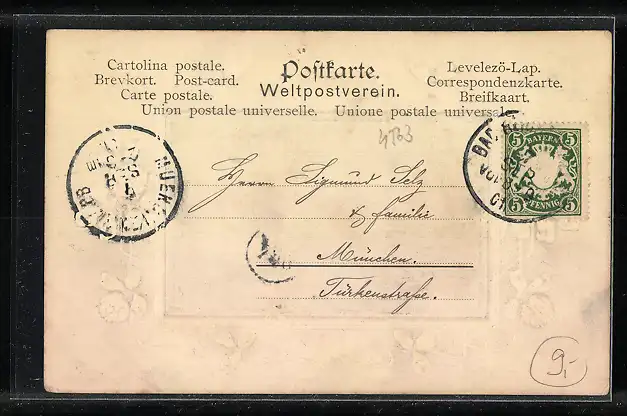 Cartolina postale.
Brevkort. Post-card.
Carte postale.
Postkarte.
Weltpostverein.
Levelezö-Lap.
Correspondenzkarte.
Breifkaart.
Union postale universelle. Unione postale universale
4763
Herrn Sigmund Selz
& Familie
München.
Türkenstraße.
5 5
BAYERN
PFENNIG
5 5
BAD
MUENCHEN
9.-